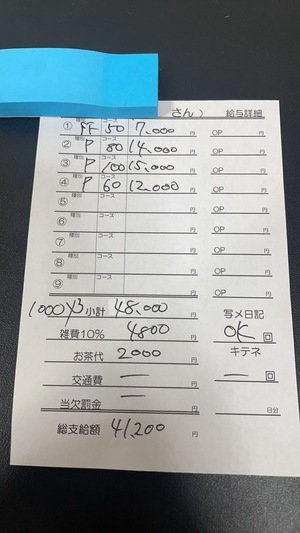 さん) 給与詳細
① 種別 FF コース 50 7,000 円 OP 円
② 種別 P コース 80 14,000 円 OP 円
③ 種別 P コース 100 15,000 円 OP 円
④ 種別 P コース 60 12,000 円 OP 円
⑤ 種別 コース 円 OP 円
⑥ 種別 コース 円 OP 円
⑦ 種別 コース 円 OP 円
⑧ 種別 コース 円 OP 円
⑨ 種別 コース 円 OP 円
小計 48,000 円 写メ日記
雑費10% 4800 円 OK 回
お茶代 2000 円 キテネ
交通費 ー 円 ー 回
当欠罰金 ー 円 日分
総支給額 41,200 円